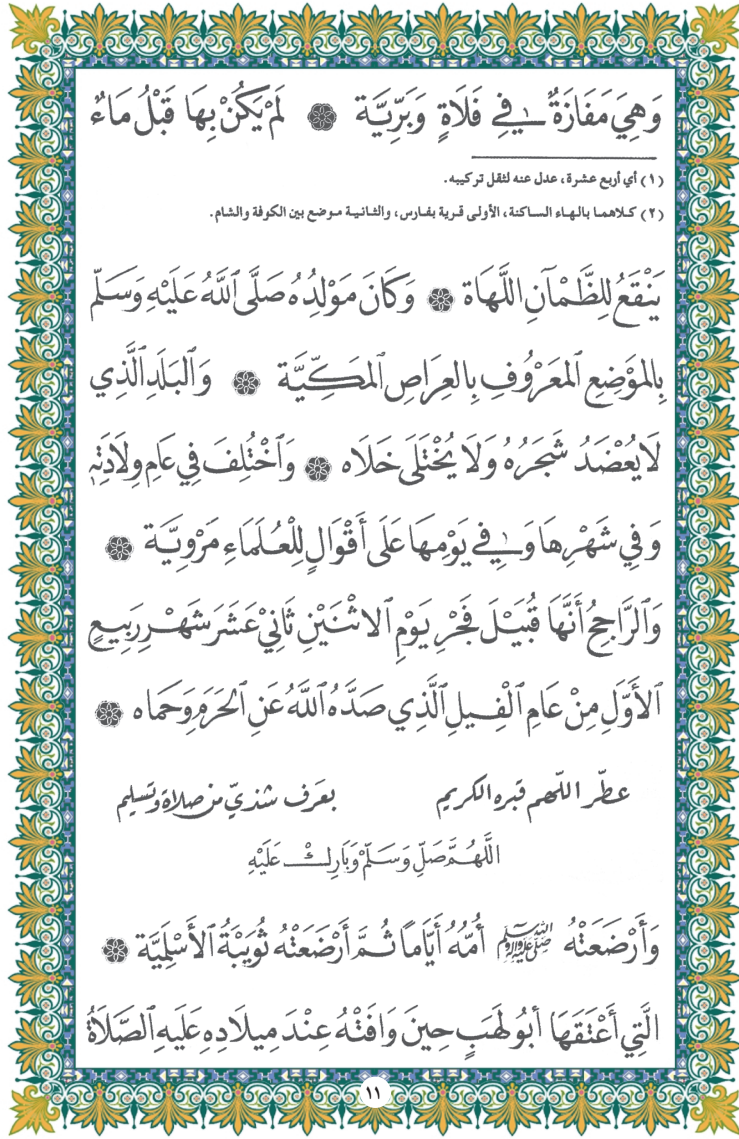 وَهِيَ مَفَازَةٌ فِي فَلَاةٍ وَبَرِّيَّة ۞ لَمْ يَكُنْ بِهَا قَبْلُ مَاءٌ
(١) أي أربع عشرة، عدل عنه لثقل تركيبه.
(٢) كلاهما بالهاء الساكنة، الأولى قرية بفارس، والثانية موضع بين الكوفة والشام.
يَنْقَعُ لِلظَّمْآنِ اللَّهَاة ۞ وَكَانَ مَوْلِدُهُ صَلَّى ٱللَّهُ عَلَيْهِ وَسَلَّمَ
بِالمَوْضِعِ ٱلمَعْرُوفِ بِالعِرَاصِ ٱلمَكِّيَّة ۞ وَٱلبَلَدِ ٱلَّذِي
لَا يُعْضَدُ شَجَرُهُ وَلَا يُخْتَلَى خَلَاه ۞ وَٱخْتُلِفَ فِي عَامِ وِلَادَتِهِ
وَفِي شَهْرِهَا وَفِي يَوْمِهَا عَلَى أَقْوَالٍ لِلْعُلَمَاءِ مَرْوِيَّة ۞
وَٱلرَّاجِحُ أَنَّهَا قُبَيْلَ فَجْرِ يَوْمِ ٱلاثْنَيْنِ ثَانِيْ عَشَرَ شَهْرِ رَبِيعٍ
ٱلأَوَّلِ مِنْ عَامِ ٱلْفِيلِ ٱلَّذِي صَدَّهُ ٱللَّهُ عَنِ ٱلحَرَمِ وَحَمَاه ۞
عطّر اللّهم قبره الكريم بعرف شذيّ من صلاة وتسليم
اللَّهُمَّ صَلِّ وَسَلِّمْ وَبَارِكْ عَلَيْهِ
وَأَرْضَعَتْهُ ﷺ أُمُّهُ أَيَّامًا ثُمَّ أَرْضَعَتْهُ ثُوَيْبَةُ ٱلأَسْلَمِيَّة ۞
الَّتِي أَعْتَقَهَا أَبُو لَهَبٍ حِينَ وَافَتْهُ عِنْدَ مِيلَادِهِ عَلَيْهِ ٱلصَّلَاةُ
١١